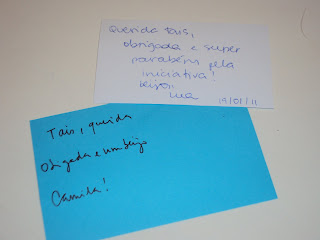 Querida Tais,
obrigada e super
parabéns pela
iniciativa!
Beijos,
Lua 19/01/11
Tais, querida
Obrigada e um beijo
Camila!